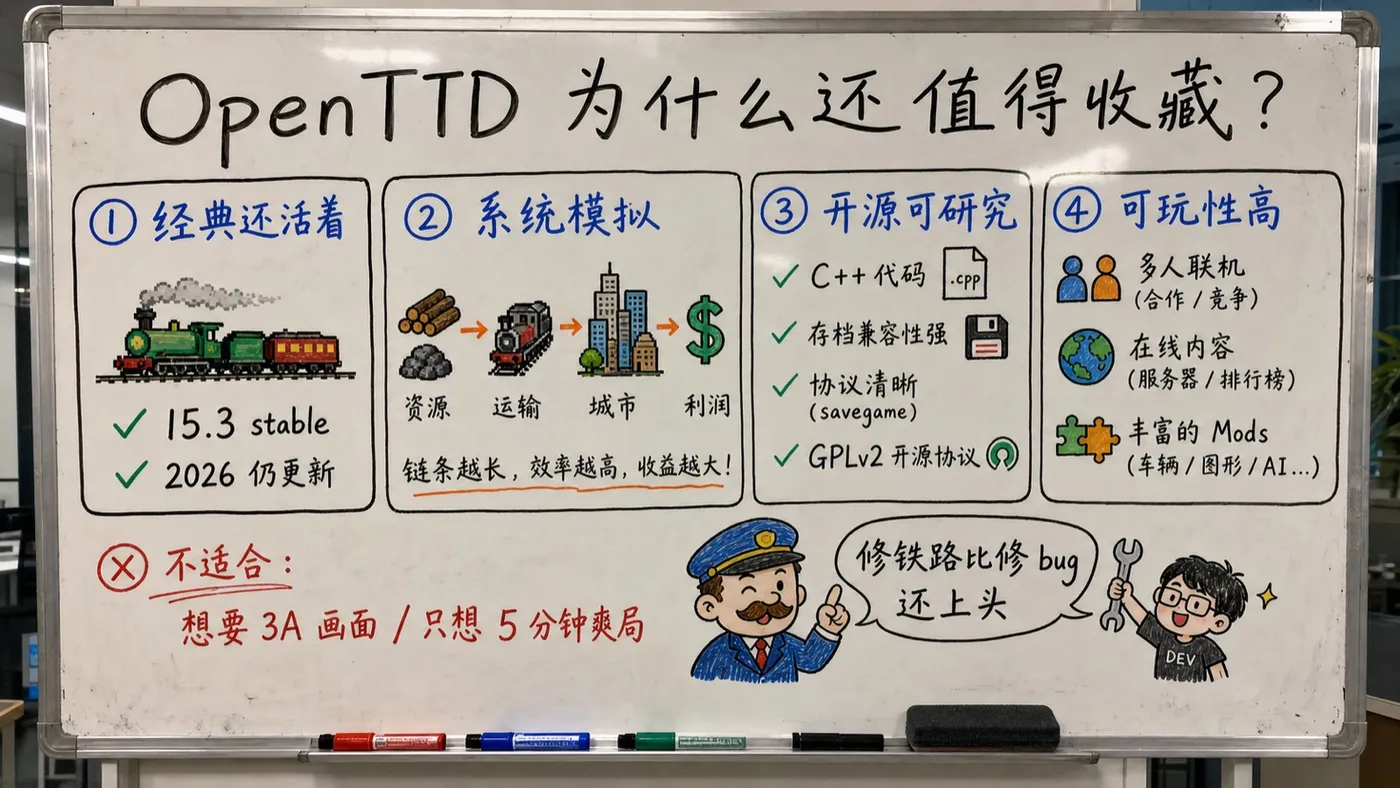 OpenTTD 为什么还值得收藏？
① 经典还活着
✓ 15.3 stable
✓ 2026 仍更新
② 系统模拟
资源 运输 城市 利润
链条越长，效率越高，收益越大！
③ 开源可研究
✓ C++ 代码
.cpp
✓ 存档兼容性强
✓ 协议清晰
(savegame)
✓ GPLv2 开源协议
④ 可玩性高
多人联机
(合作 / 竞争)
在线内容
(服务器 / 排行榜)
丰富的 Mods
(车辆 / 图形 / AI...)
不适合：
想要 3A 画面 / 只想 5 分钟爽局
修铁路比修 bug
还上头
DEV